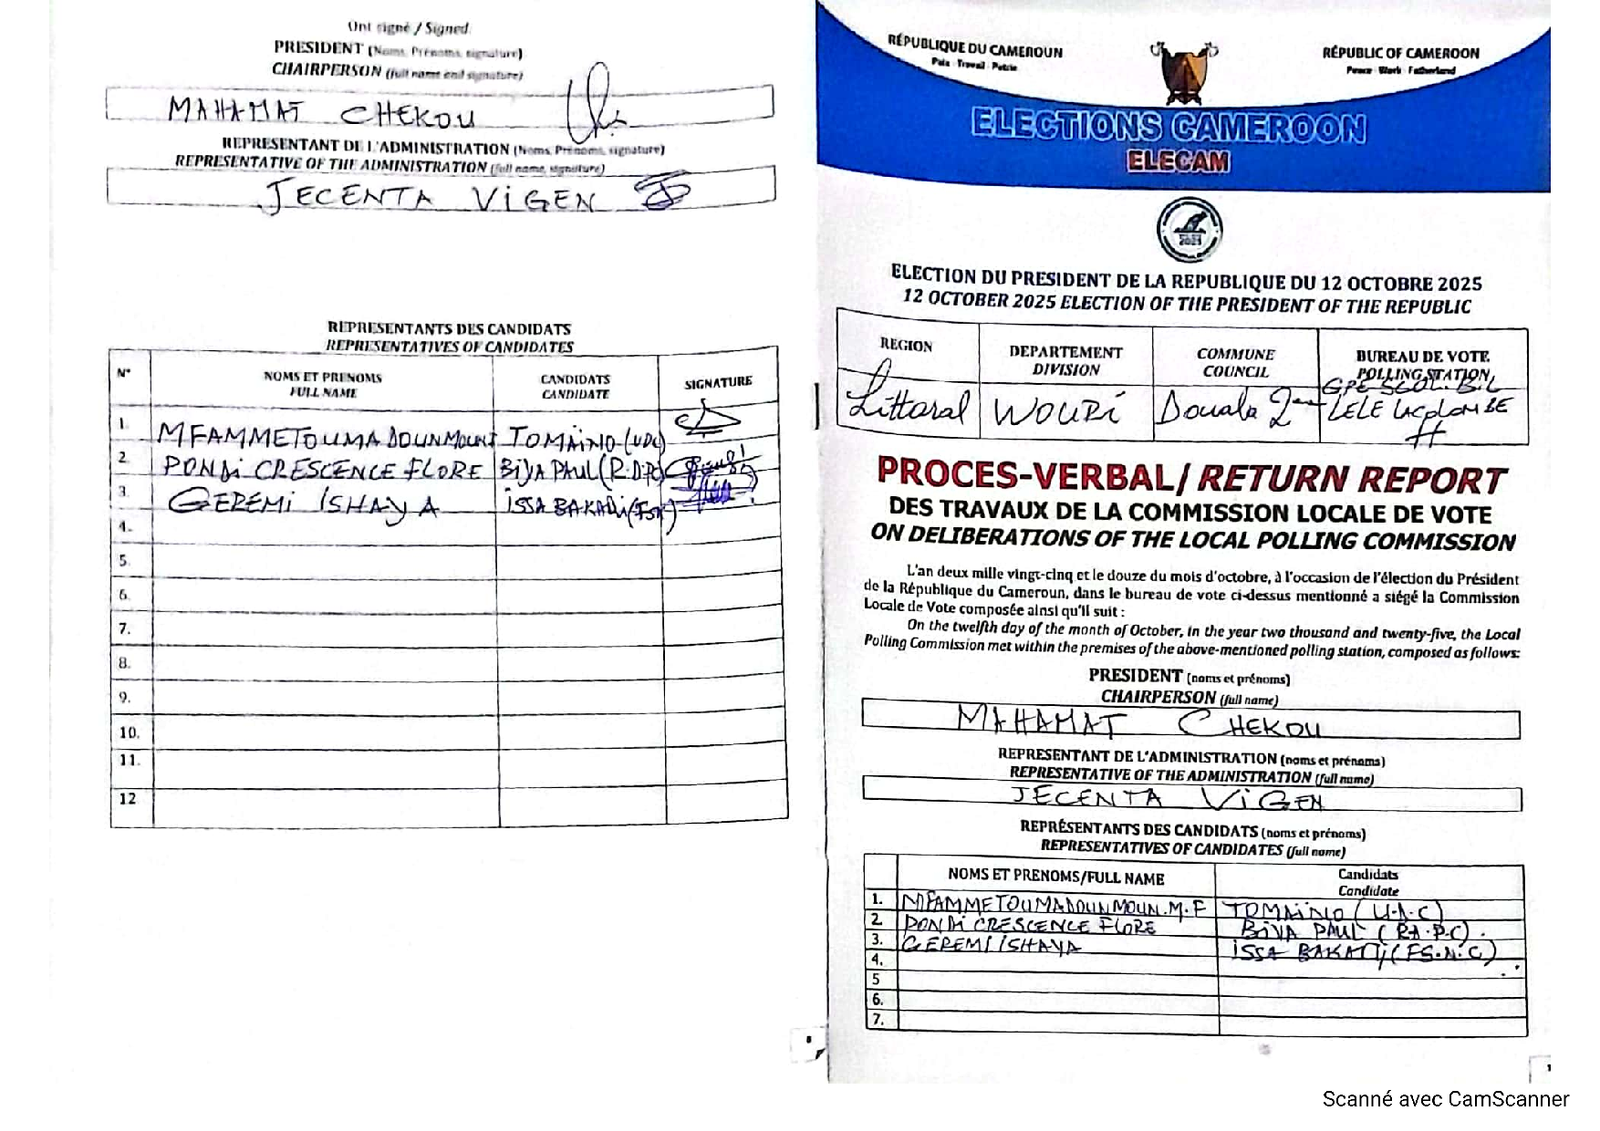 Ont signé / Signed
PRESIDENT (Noms, Prénoms, signature)
CHAIRPERSON (full name and signature)
MAHAMAT CHEKOU
REPRESENTANT DE L'ADMINISTRATION (Noms, Prénoms, signature)
REPRESENTATIVE OF THE ADMINISTRATION (full name, signature)
JECENTA ViGEN
REPRESENTANTS DES CANDIDATS
REPRESENTATIVES OF CANDIDATES
N° NOMS ET PRENOMS FULL NAME CANDIDATS CANDIDATE SIGNATURE
1. MFAMMETOUMADOUNMOUN TOMAÏNO (UDC)
2. PONDI CRESCENCE FLORE BiYA PAUL
3. GEREMI ISHAYA iSSA BAKARY
4.
5.
6.
7.
8.
9.
10.
11.
12
8
RÉPUBLIQUE DU CAMEROUN
Paix - Travail - Patrie
RÉPUBLIC OF CAMEROON
Peace - Work - Fatherland
ELECTIONS CAMEROON
ELECAM
2025
ELECTION DU PRESIDENT DE LA REPUBLIQUE DU 12 OCTOBRE 2025
12 OCTOBER 2025 ELECTION OF THE PRESIDENT OF THE REPUBLIC
REGION DEPARTEMENT DIVISION COMMUNE COUNCIL BUREAU DE VOTE POLLING STATION
Littoral WOURI Douala 2 LELE
PROCES-VERBAL/ RETURN REPORT
DES TRAVAUX DE LA COMMISSION LOCALE DE VOTE
ON DELIBERATIONS OF THE LOCAL POLLING COMMISSION
L'an deux mille vingt-cinq et le douze du mois d'octobre, à l'occasion de l'élection du Président
de la République du Cameroun, dans le bureau de vote ci-dessus mentionné a siégé la Commission
Locale de Vote composée ainsi qu'il suit :
On the twelfth day of the month of October, in the year two thousand and twenty-five, the Local
Polling Commission met within the premises of the above-mentioned polling station, composed as follows:
PRESIDENT (noms et prénoms)
CHAIRPERSON (full name)
MAHAMAT CHEKOU
REPRESENTANT DE L'ADMINISTRATION (noms et prénoms)
REPRESENTATIVE OF THE ADMINISTRATION (full name)
JECENTA ViGEN
REPRÉSENTANTS DES CANDIDATS (noms et prénoms)
REPRESENTATIVES OF CANDIDATES (full name)
NOMS ET PRENOMS/FULL NAME Candidats Candidate
1. MFAMMETOUMADOUNMOUN.M.F TOMAÏNO (U.D.C)
2. PONDI CRESCENCE FLORE BiYA PAUL (R.D.P.C).
3. GEREMI ISHAYA iSSA BAKARY (F.S.N.C)
4.
5
6.
7.
1
Scanné avec CamScanner